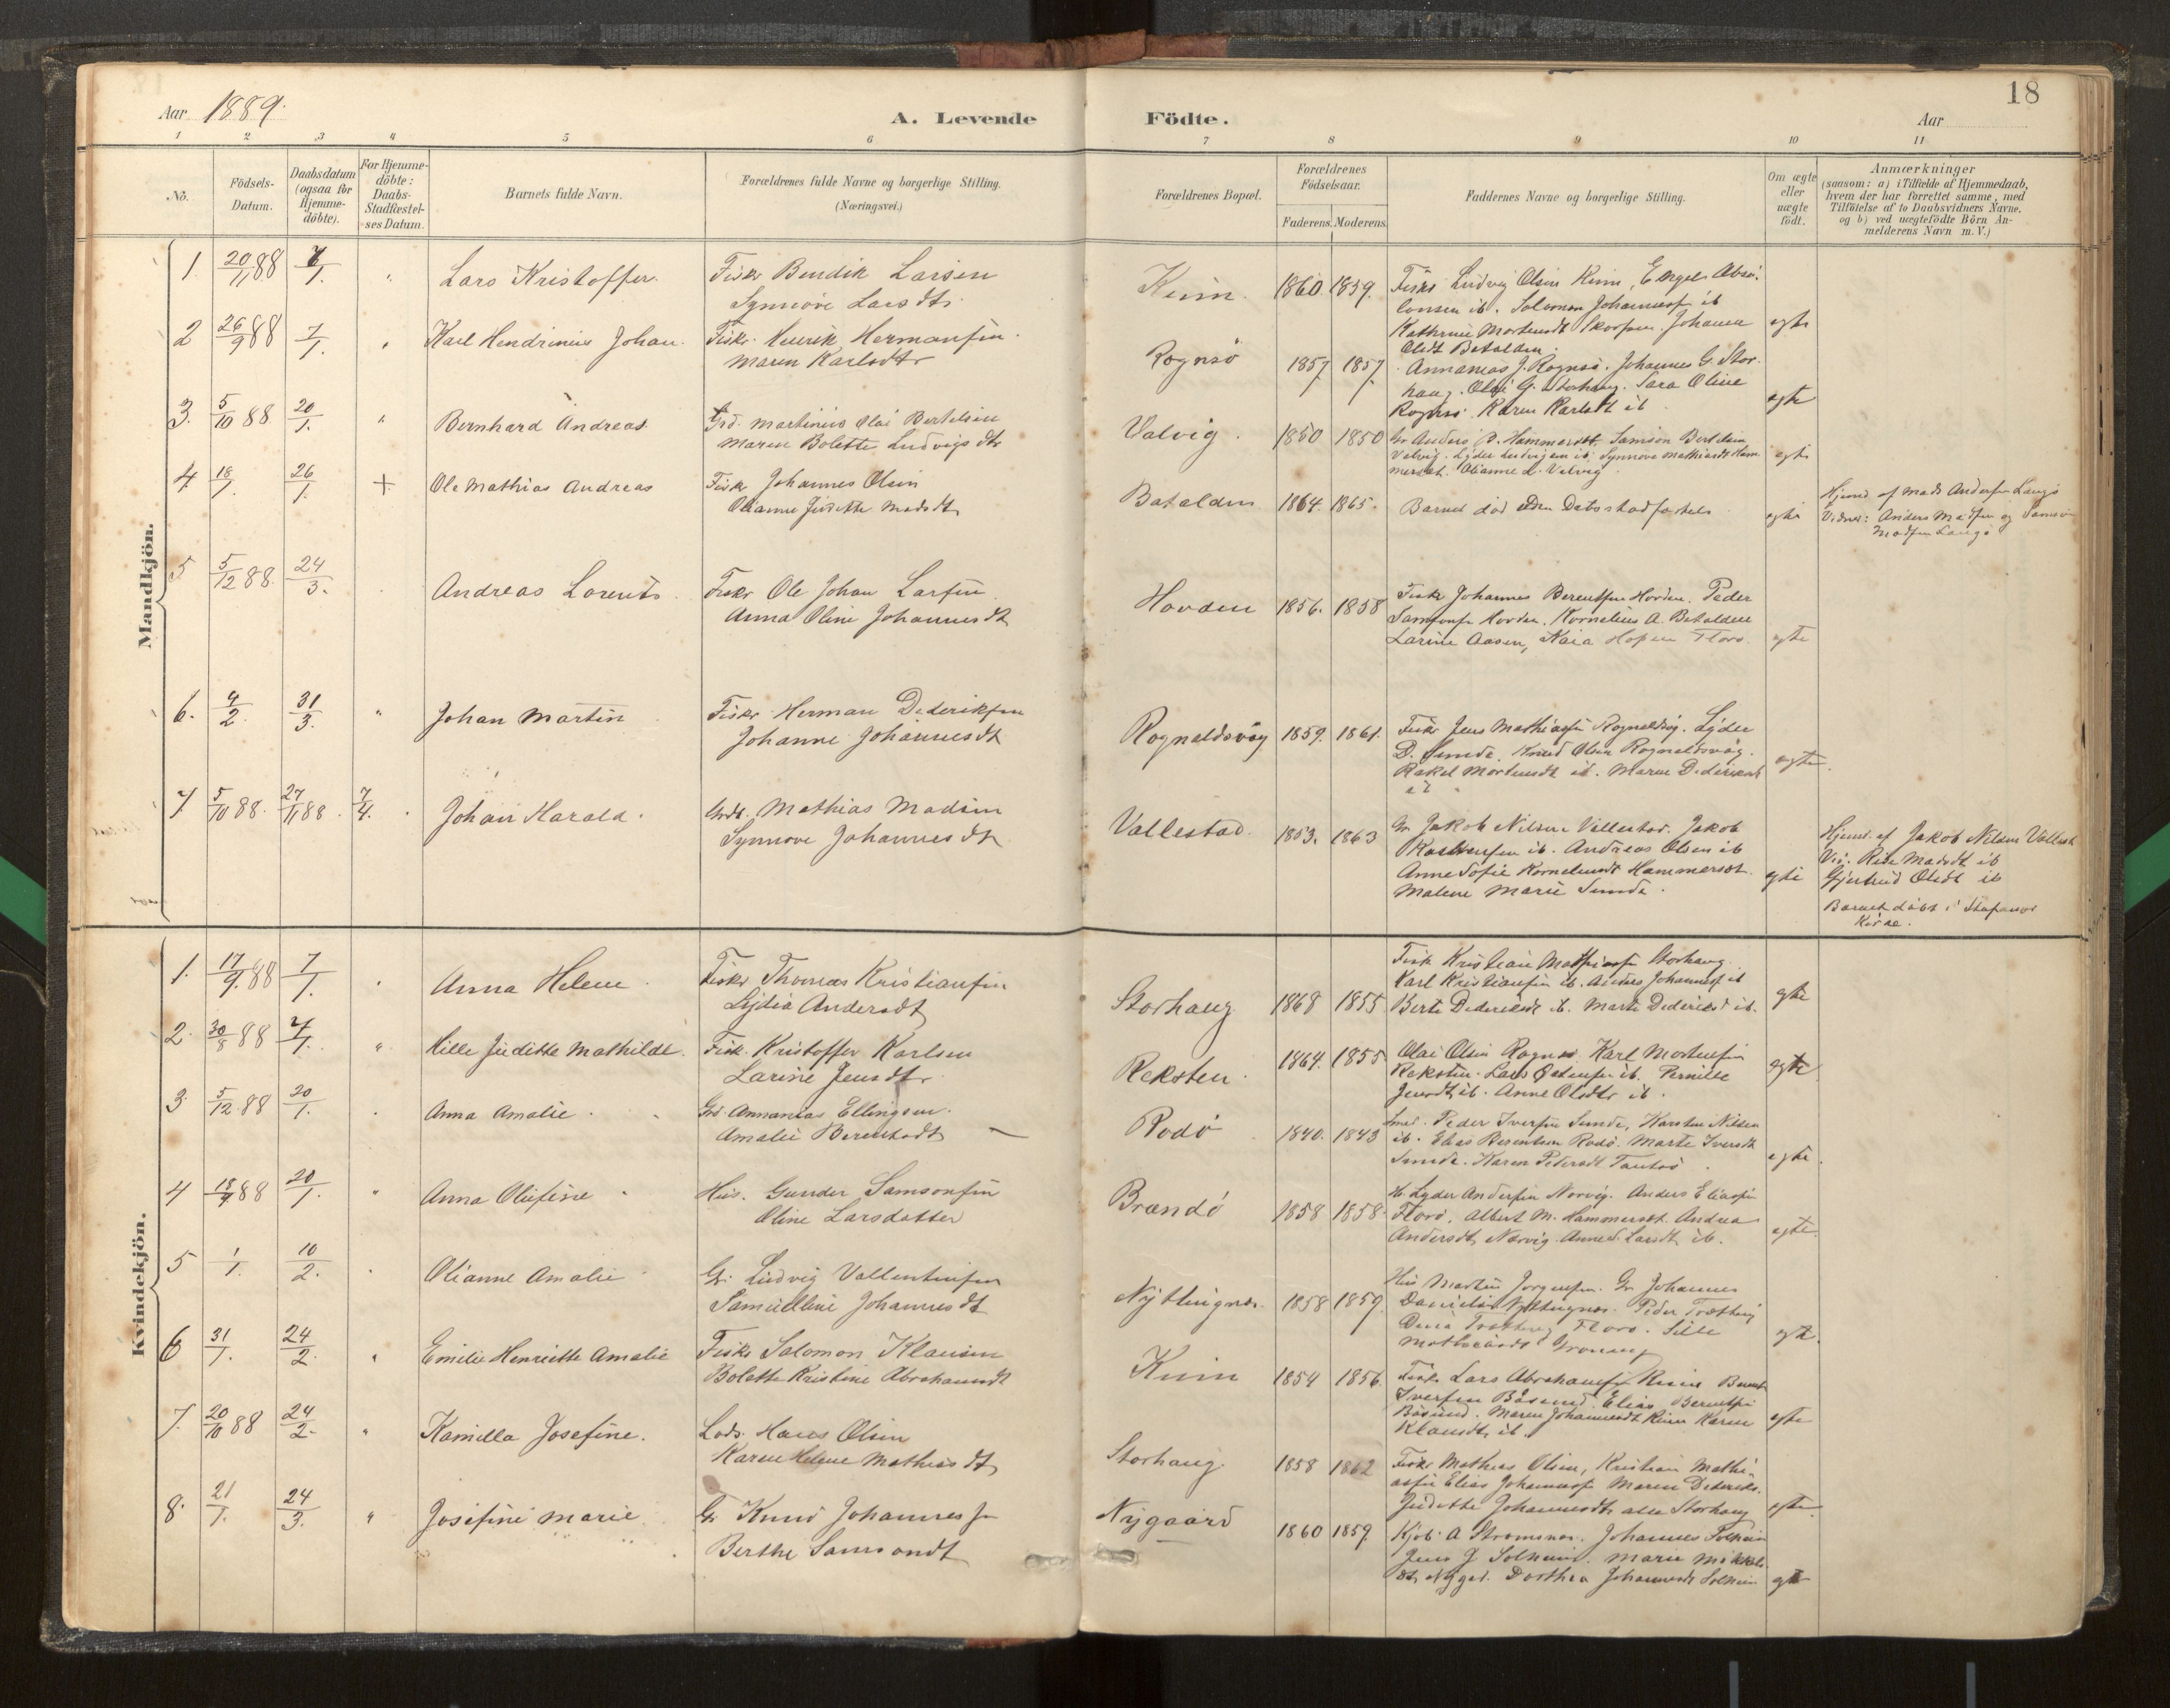 Aar 1889.
A. Levende
Födte.
Aar
18
1 2 3 4 5 6 7 8 9 10 11
No.
Födsels-
Datum.
Daabsdatum
(ogsaa for
Hjemme-
döbte).
For Hjemme-
döbte:
Daabs-
Stadfæstel-
ses Datum.
Barnets fulde Navn.
Forældrenes fulde Navne og borgerlige Stilling.
(Næringsvei.)
Forældrenes Bopæl.
Forældrenes
Födselsaar.
Faderens. Moderens.
Faddernes Navne og borgerlige Stilling.
Om ægte
eller
uægte
födt.
Anmærkninger
(saasom: a) i Tilfælde af Hjemmedaab,
hvem der har forrettet samme, med
Tilföielse af to Daabsvidners Navne,
og b) ved uægtefödte Börn An-
melderens Navn m. V.)
Mandkjön.
1. 20/11 88 7/1. " Lars Kristoffer.
Fisker Bendik Larsen
Synnöve Larsdtr.
Kinn. 1860. 1859.
Fisker Ludvig Olsen Kinn, Engel Absa-
lonsen ib. Salomon Johannesf ib
Kathrine Mortensdt Skorpen. Johanna
Olsdt Batalden.
egte
2 26/9 88 7/1. " Karl Hendrinius Johan.
Fisker. Henrik Hermansen.
Maren Karlsdtr
Rognsö 1857 1857
Annanias J. Rognsö. Johannes G. Stor-
haug. Olai G. Storhaug. Sara Oline
Rognsö. Karen Karlsdt ib
egte
3. 5/10 88 20/1. " Bernhard Andreas.
Grd. Martinius Olai Bertelsen
Maren Bolette Ludvigsdtr
Valvig. 1850 1850
Gr Anders B. Hammerset. Samson Bertelsen
Valvig. Lyder Ludvigsen ib. Synnöve Mathiasdt Ham-
merset. Olianne L. Valvig.
egte
4. 18/1. 26/1. + Ole Mathias Andreas
Fisker Johannes Olsen
Olianne Judithe Madsdt
Batalden 1864. 1865.
Barnet död uden Daabsstadfæstelse
egte
Hjemd. af Mads Andersen Langö
Vidner: Anders Madsen og Samson
Madsen Langö
5 5/12 88. 24/3. Andreas Lorents.
Fisker Ole Johan Larsen.
Anna Oline Johannesdt
Hovden 1856. 1858
Fisker Johannes Berentsen Hovden. Peder
Samsonsen Hovden. Kornelius A. Batalden
Larine Aasen, Kaia Hopen Florö.
egte
6. 4/2. 31/3. " Johan Martin
Fisker Herman Dederiksen
Johanne Johannesdt
Rognaldsvåg 1859. 1861.
Fisker Jens Mathiasen Rognaldsvåg. Lyder
D. Sunde. Knud Olsen Rognaldsvåg.
Rakel Mortensdt ib. Maren Dederiksdt
ib
egte.
7 5/10 88. 27/11 88. 7/4. Johan Harald.
Grdr. Mathias Madsen
Synnöve Johannesdt
Vallestad. 1853. 1863
Gr Jakob Nilsen Vallestad. Jakob
ib. Andreas Olsen ib
Anne Sofie Korneliusdt Hammerset.
Malene Marie Sunde.
egte
Hjemd. af Jakob Nilsen Vallest
Vid. Madsdt ib
Gjertrud Olsdt ib
Barnet döbt i
Kirke.
Kvindekjön.
1. 17/9 88 7/1. Anna Helene.
Fisker Thomas Kristiansen
Lydia Andersdt
Storhaug 1868 1855
Fisk Kristian Mathiasen Storhaug
Karl Kristiansen ib. Anders Johannesf ib
Berte Dederiksdt ib. Marte Dederiksd ib.
egte
2. 30/8 88 7/1. " Hille Juditte Mathilde.
Fisk. Kristoffer Karlsen
Larine Jensdtr.
Reksten. 1864. 1855
Olai Olsen Rognsö. Karl Mortensen
Reksten. Lars Östensen ib. Pernille
Jensdt ib. Anne Olsdtr ib.
egte
3 5/12 88 20/1. Anna Amalie.
Grd. Annanias Ellingsen.
Amalie Berentsdt
Rodö 1840. 1843
Peder Iversen Sunde, Karsten Nilsen
ib. Elias Berentsen Rodö. Marte Iversdt
Sunde. Karen Petersdt Tansö.
egte.
4 18/9 88 20/1. " Anna Olufine
Hus. Gunder Samsonsen
Oline Larsdatter
Brandö 1858 1858
Lyder Andersen Norvig. Anders Eliassen
Florö. Albert M. Hammerset. Andrea
Andersdt Norvig. Anne d. Larsdt ib.
egte.
5 1/1. 10/2. Olianne Amalie
Gr. Ludvig Vallentinsen
Samuelline Johannesdt
Nyttingnes. 1858 1859
Hus Martin Jörgensen. Gr Johannes
Danielsen Nyttingnes. Peder
Florö. Sille
egte.
6 31/1. 24/2. " Emilie Henriette Amalie
Fisker Salomon Klausen
Bolette Kristine Abrahamsdt
Kinn 1854 1856.
Fisker Lars Abrahamsen Kinn Berent
Iversen Båsund. Elias Berentsen
Båsund. Maren Johannesdt Kinn Karen
Klausdtr ib.
egte
7. 20/10 88 24/2. " Kamilla Josefine.
Lods. Hans Olsen
Karen Helene Mathiasdt
Storhaug 1858 1862
Fisker Mathias Olsen, Kristian Mathi-
assen Elias Johannesf Maren Dederiks.
Judithe Johannesdt alle Storhaug
egte.
8. 21/1. 24/3. " Josefine Marie
Gr Knud Johannesen
Berthe Samsondt
Nygaard 1860 1859.
Kjöb. A Strömsnes. Johannes Solheim
Jens J. Solheim. Marie Mikkels-
dt Nygrd. Dorthea Johannesdt Solheim
egte